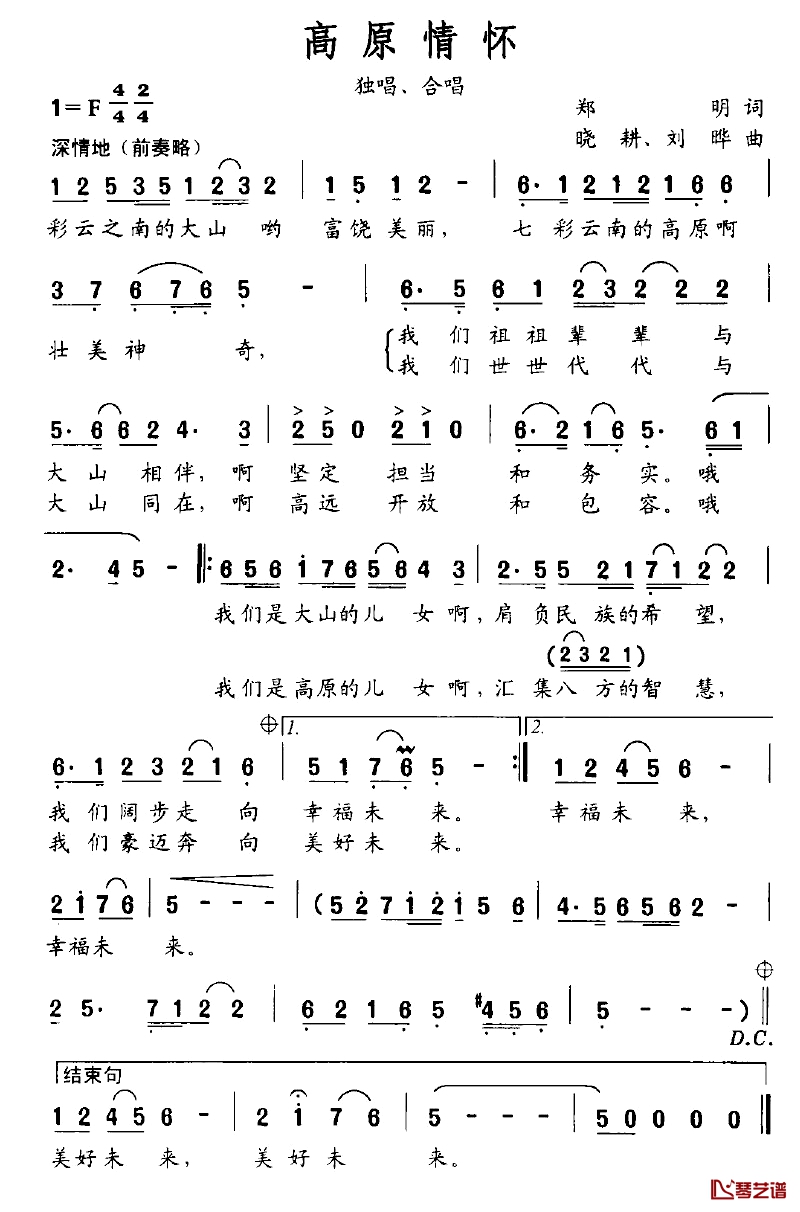 高原情怀
独唱、合唱
1=F 4/4 2/4
郑 明 词
深情地（前奏略）
晓 耕、刘 晔 曲
1 2 5 3 5 1 2 3 2 | 1 5 1 2 - | 6· 1 2 1 2 1 6 6
彩云之南的大山 哟 富饶美丽， 七 彩云南的高原啊
3 7 6 7 6 5 - | 6· 5 6 1 2 3 2 2 2 |
壮美神 奇， 我 们 祖 祖 辈 辈 与
我 们 世 世 代 代 与
5· 6 6 2 4· 3 | 2 5 0 2 1 0 | 6· 2 1 6 5· 6 1 |
大 山 相 伴， 啊 坚 定 担 当 和 务 实。哦
大 山 同 在， 啊 高 远 开 放 和 包 容。哦
2· 4 5 - |: 6 5 6 1 7 6 5 6 4 3 | 2· 5 5 2 1 7 1 2 2 |
我们是大山的儿 女啊，肩 负民 族的希 望，
(2 3 2 1)
我们是高原的儿 女啊，汇 集八 方的智 慧，
1. 2.
6· 1 2 3 2 1 6 | 5 1 7 6 5· - :| 1 2 4 5 6 - |
我 们 阔 步 走 向 幸 福 未 来。 幸 福 未 来，
我 们 豪 迈 奔 向 美 好 未 来。
2 1 7 6 | 5 - - - | (5 2 7 1 2 1 5 6 | 4· 5 6 5 6 2 - |
幸福未 来。
2 5· 7 1 2 2 | 6 2 1 6 5 #4 5 6 | 5 - - -) ‖
D.C.
结束句
1 2 4 5 6 - | 2 1 7 6 | 5 - - - | 5 0 0 0 0 ‖
美好未 来， 美 好 未 来。
琴艺谱